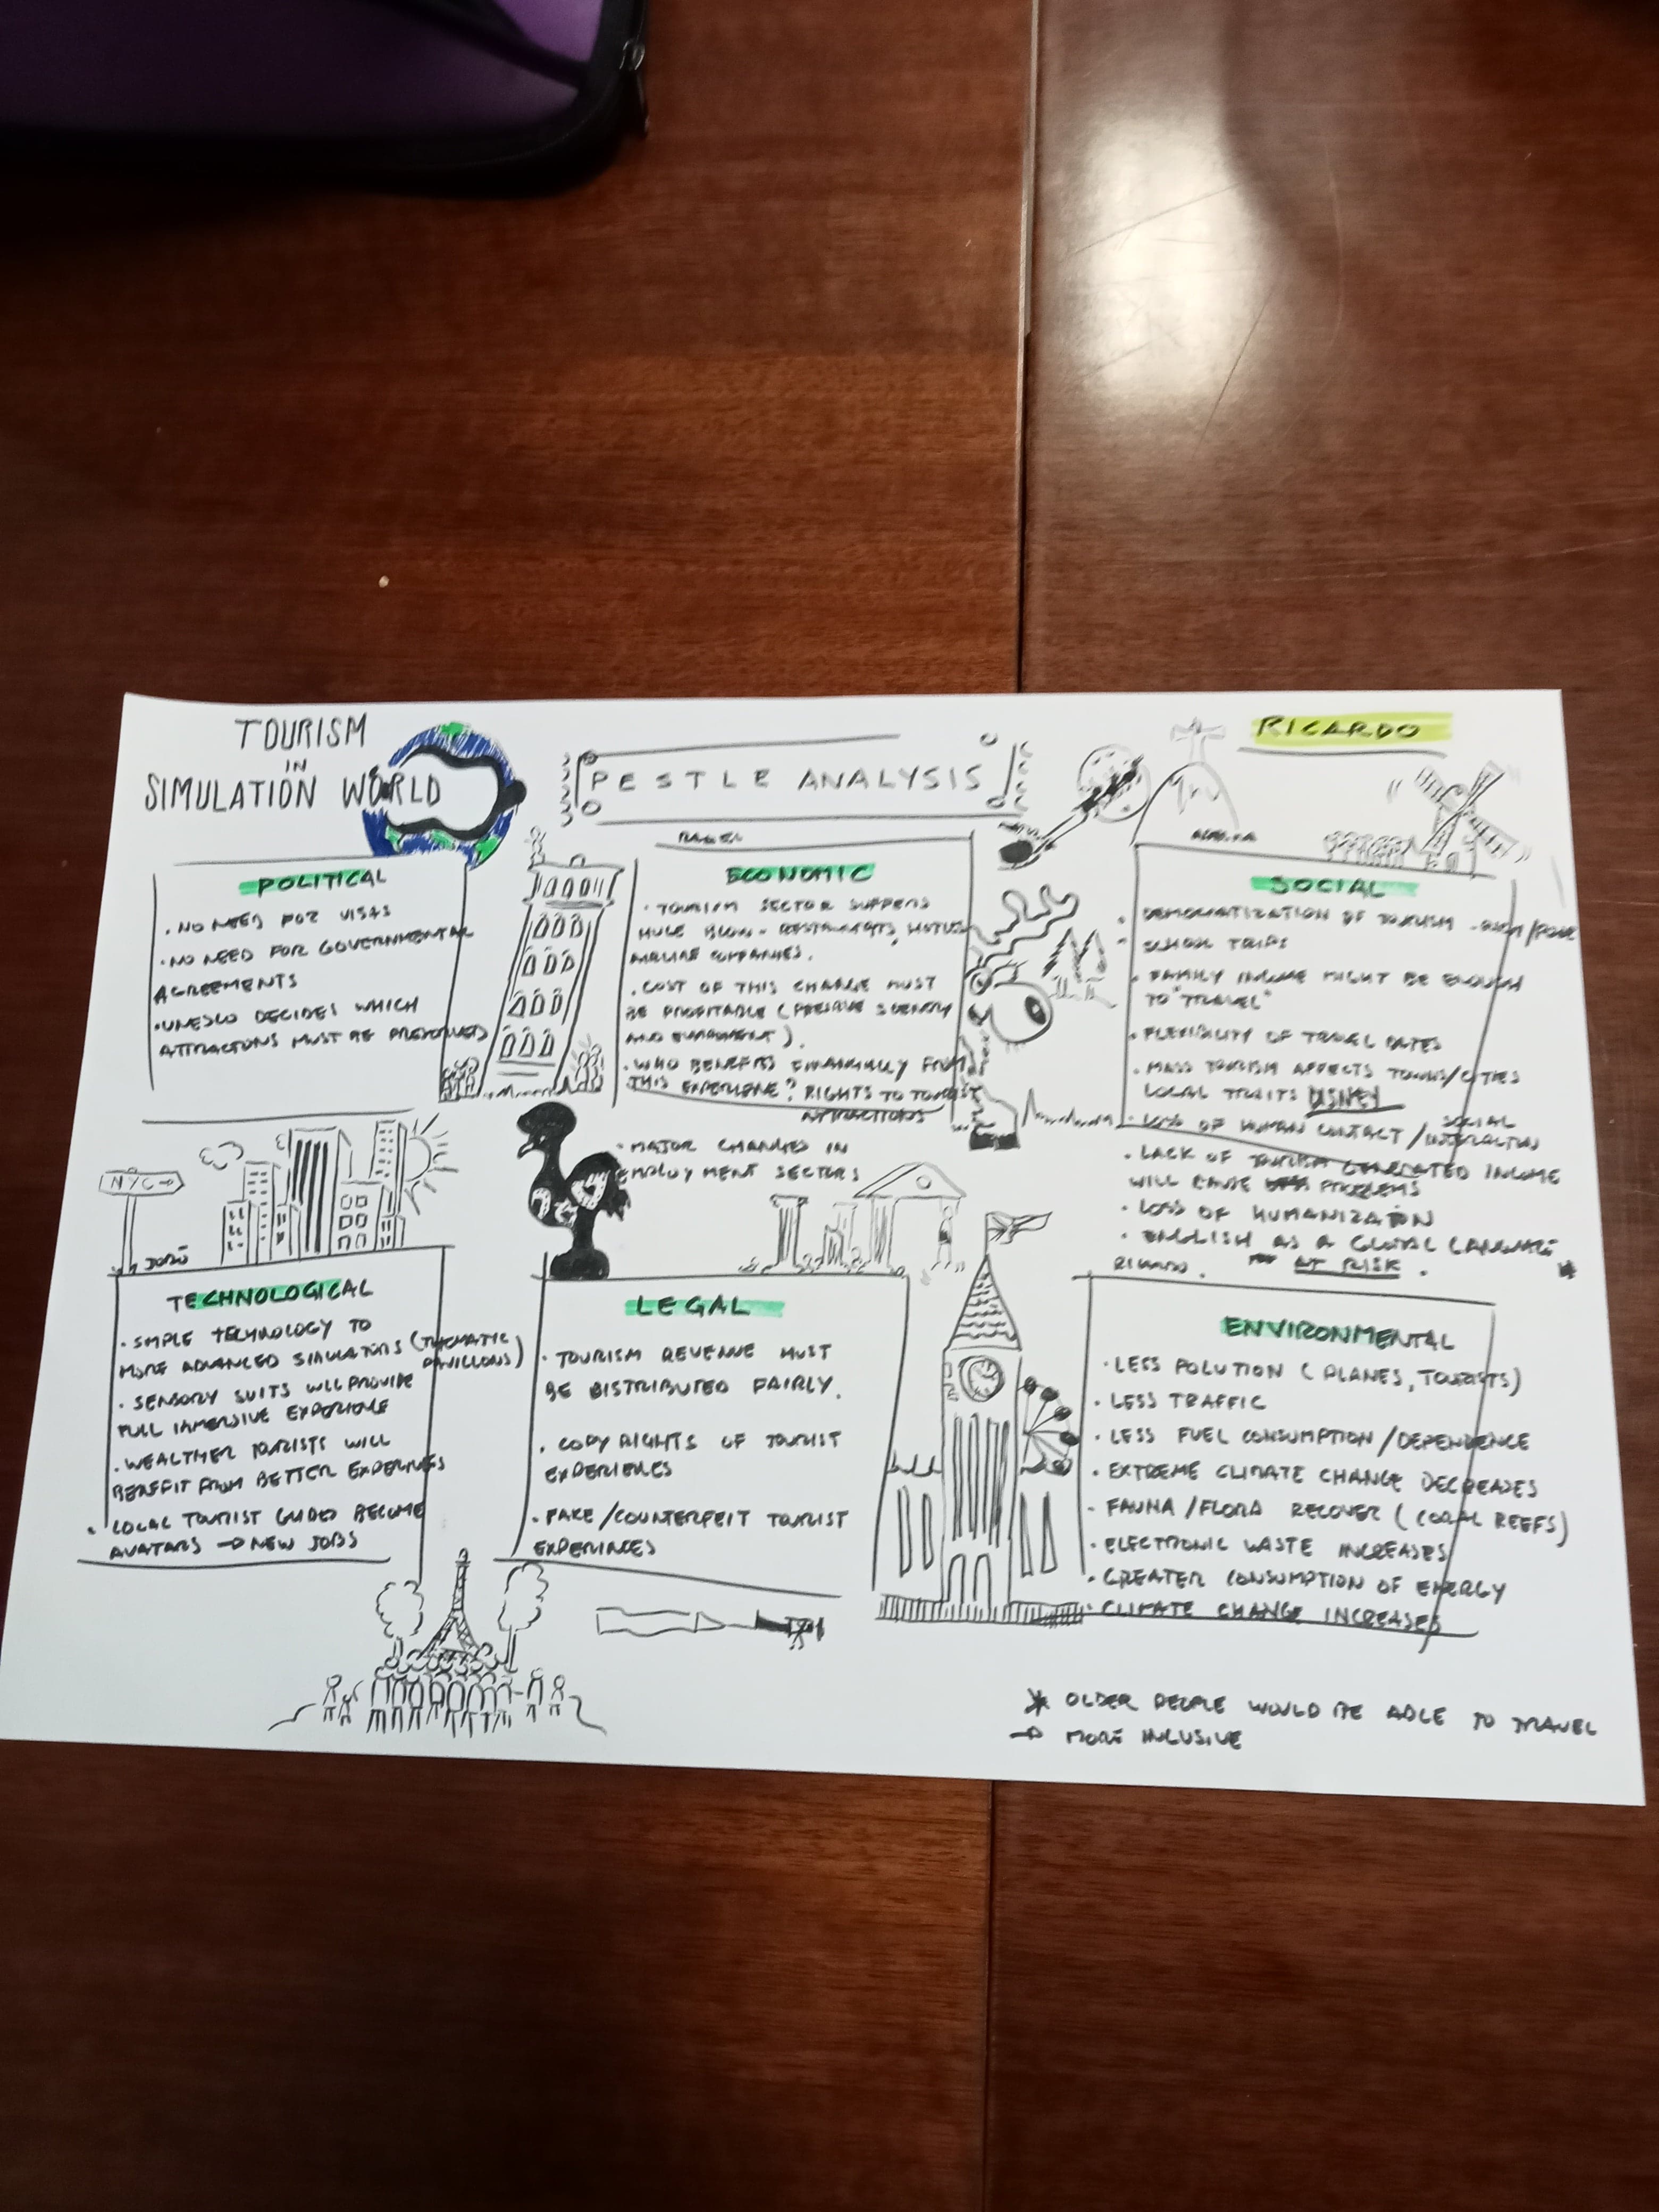 TOURISM
IN
SIMULATION WORLD
PESTLE ANALYSIS
RICARDO
POLITICAL
. NO NEED FOR VISAS
. NO NEED FOR GOVERNMENTAL
AGREEMENTS
. UNESCO DECIDES WHICH
ATTRACTIONS MUST BE PRESERVED
ECONOMIC
. TOURISM SECTOR SUFFERS
HUGE BLOW - RESTAURANTS, HOTELS
AIRLINE COMPANIES.
. COST OF THIS CHANGE MUST
BE PROFITABLE (PRESERVE
AND).
. WHO BENEFITS FINANCIALLY FROM
THIS EXPERIENCE? RIGHTS TO TOURIST
ATTRACTIONS
. MAJOR CHANGES IN
EMPLOYMENT SECTORS
SOCIAL
. DEMOCRATIZATION OF TOURISM - RICH/POOR
- SCHOOL TRIPS
. FAMILY INCOME MIGHT BE ENOUGH
TO "TRAVEL"
. FLEXIBILITY OF TRAVEL DATES
. MASS TOURISM AFFECTS TOWNS/CITIES
LOCAL TRAITS DISNEY
. LOSS OF HUMAN CONTACT / SOCIAL INTERACTION
. LACK OF TOURISM GENERATED INCOME
WILL CAUSE PROBLEMS
. LOSS OF HUMANIZATION
. ENGLISH AS A GLOBAL LANGUAGE
RICARDO. AT RISK. *
NYC →
JOÃO
TECHNOLOGICAL
. SIMPLE TECHNOLOGY TO
MORE ADVANCED SIMULATORS (THEMATIC
PAVILLONS)
. SENSORY SUITS WILL PROVIDE
FULL IMMERSIVE EXPERIENCE
. WEALTHIER TOURISTS WILL
BENEFIT FROM BETTER EXPERIENCES
. LOCAL TOURIST GUIDES BECOME
AVATARS → NEW JOBS
LEGAL
. TOURISM REVENUE MUST
BE DISTRIBUTED FAIRLY.
. COPY RIGHTS OF TOURIST
EXPERIENCES
. FAKE/COUNTERFEIT TOURIST
EXPERIENCES
ENVIRONMENTAL
. LESS POLUTION (PLANES, TOURISTS)
. LESS TRAFFIC
. LESS FUEL CONSUMPTION/DEPENDENCE
. EXTREME CLIMATE CHANGE DECREASES
. FAUNA/FLORA RECOVER (CORAL REEFS)
. ELECTRONIC WASTE INCREASES
. GREATER CONSUMPTION OF ENERGY
. CLIMATE CHANGE INCREASES
* OLDER PEOPLE WOULD BE ABLE TO TRAVEL
→ MORE INCLUSIVE